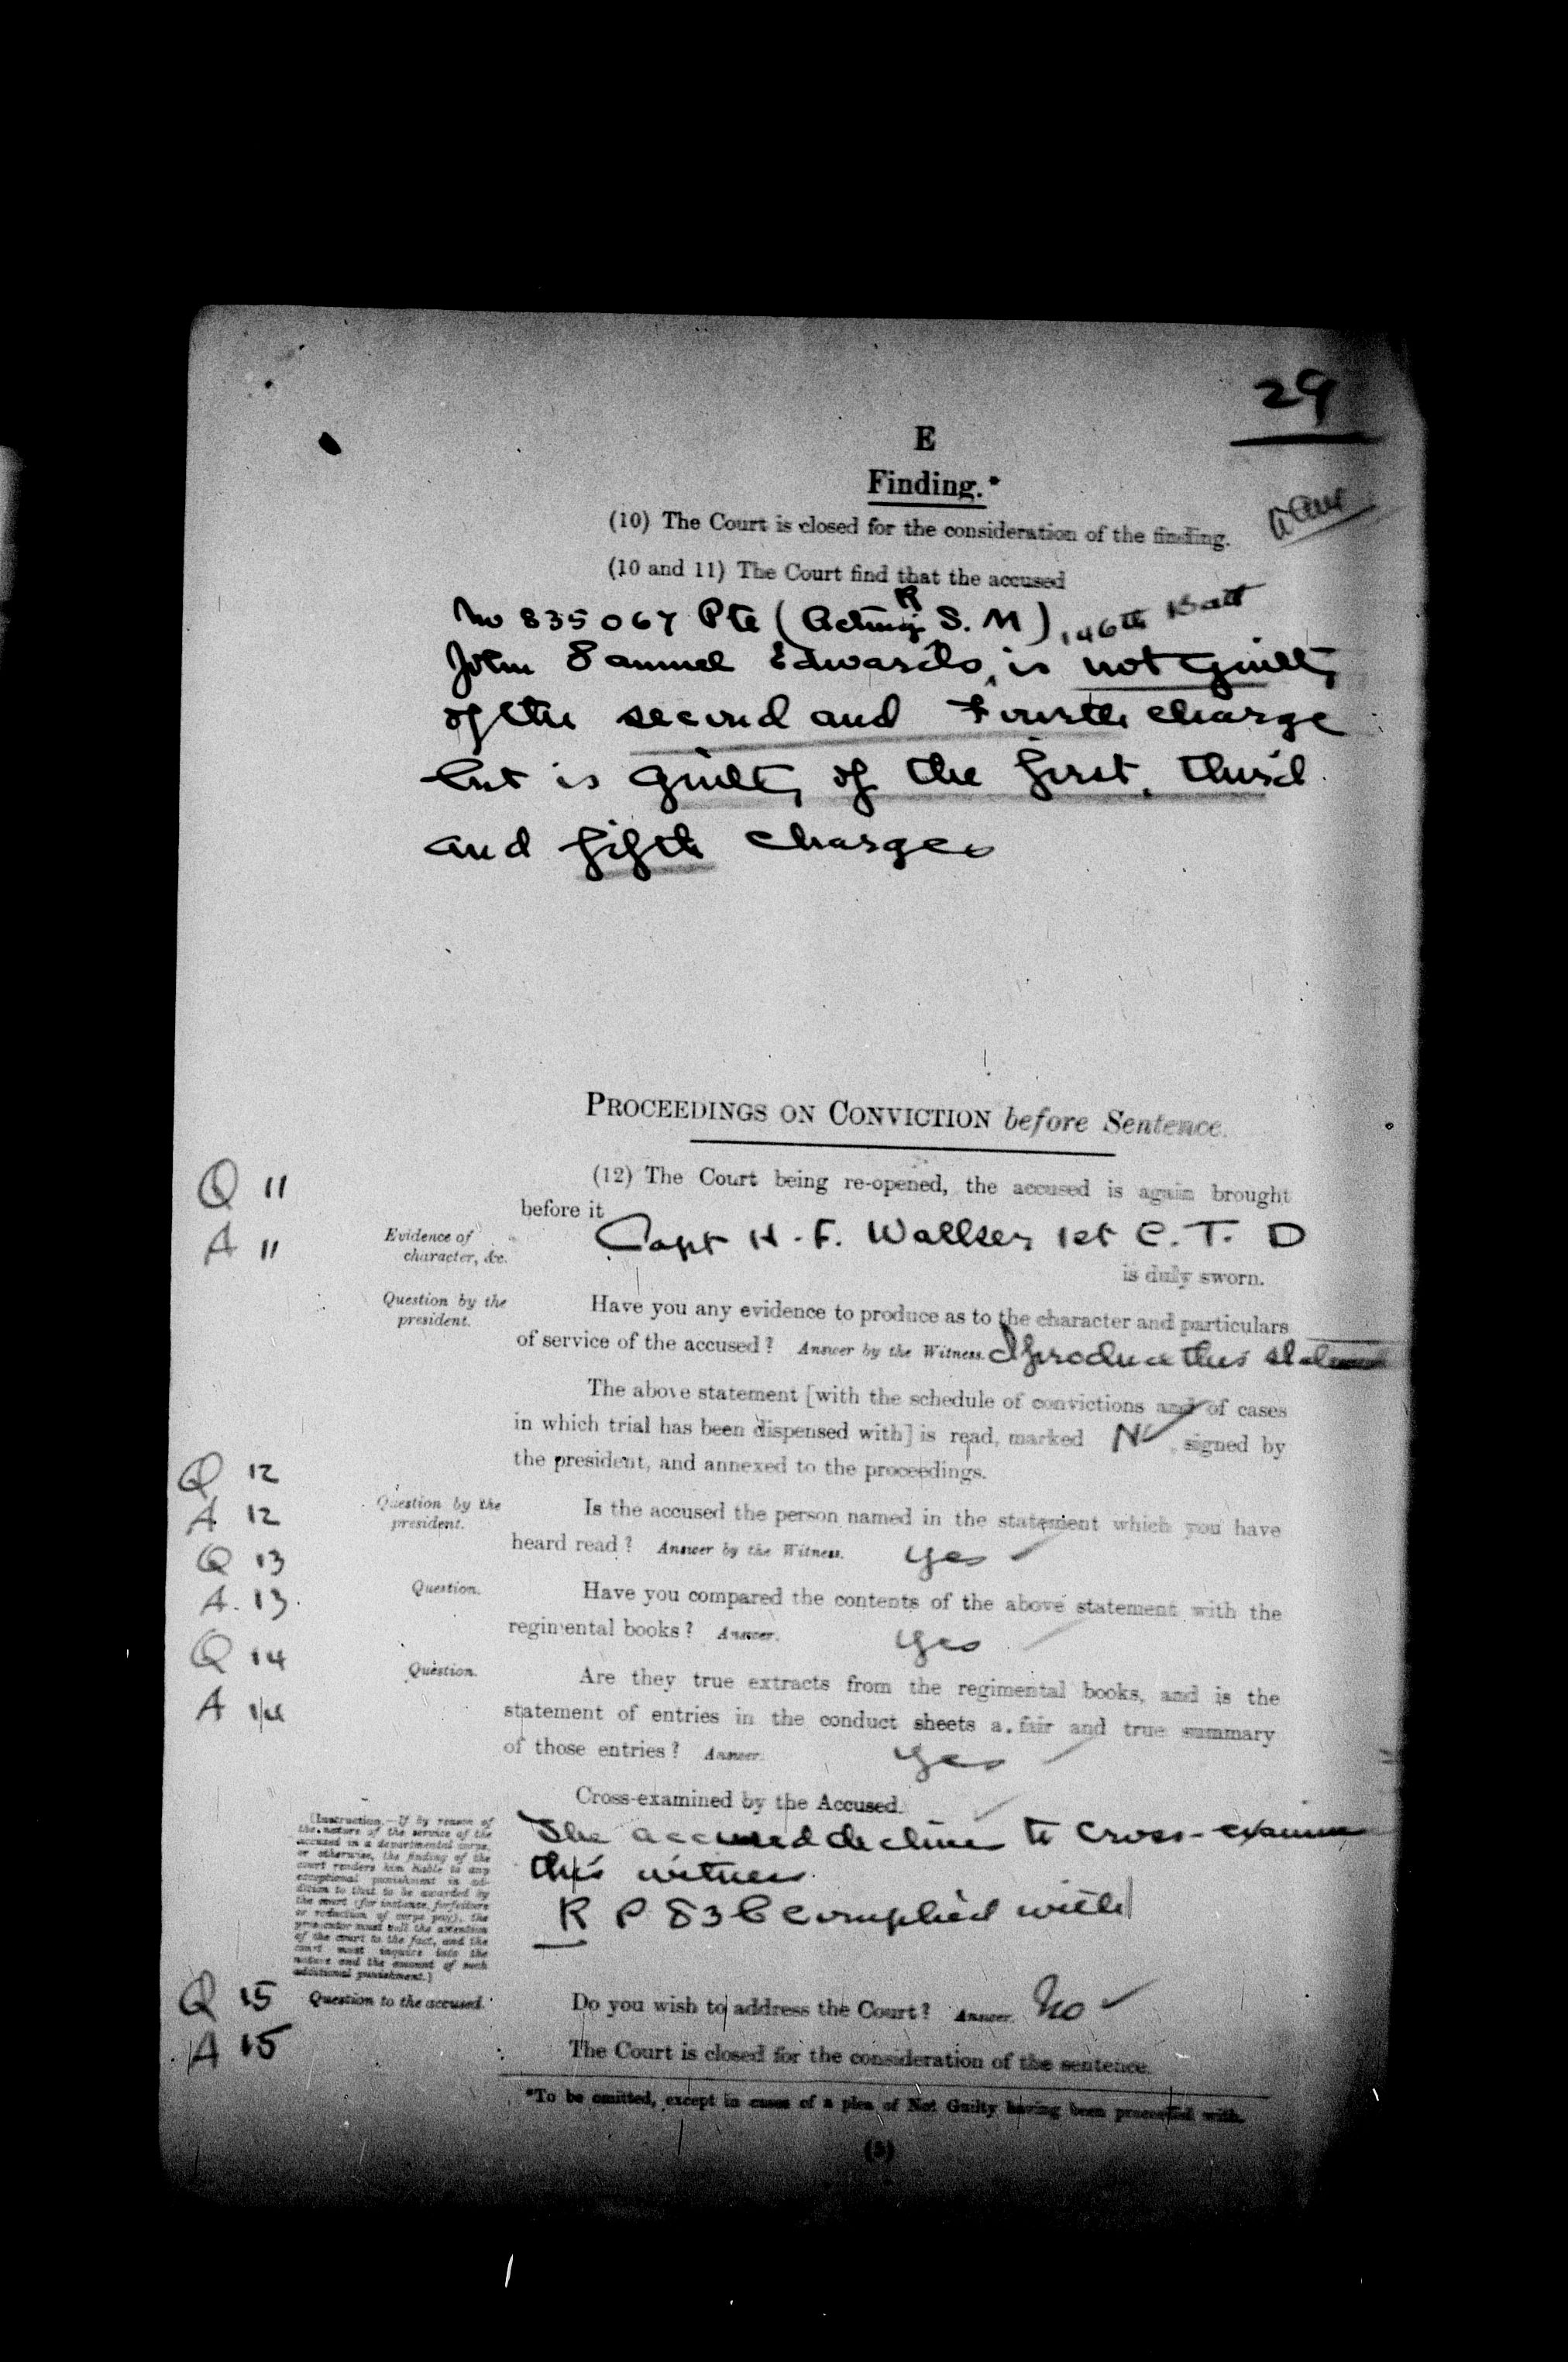 29
E
Finding.*
(10) The Court is closed for the consideration of the finding.
(10 and 11) The Court find that the accused
No 835067 Pte (Acting R S. M) 146th Batt
John Samuel Edwards, is not guilty
of the second and Fourth charge
but is guilty of the first, third
and fifth charges
PROCEEDINGS ON CONVICTION before Sentence.
Q 11
(12) The Court being re-opened, the accused is again brought
before it
A 11
Evidence of
character, &c.
Capt H. F. Walker 1st C. T. D
is duly sworn.
Question by the
president.
Have you any evidence to produce as to the character and particulars
of service of the accused? Answer by the Witness. I produce this statement
The above statement [with the schedule of convictions and of cases
in which trial has been dispensed with] is read, marked N signed by
the president, and annexed to the proceedings.
Q 12
A 12
Question by the
president.
Is the accused the person named in the statement which you have
heard read? Answer by the Witness. yes
Q 13
A. 13.
Question.
Have you compared the contents of the above statement with the
regimental books? Answer. yes
Q 14
A 14
Question.
Are they true extracts from the regimental books, and is the
statement of entries in the conduct sheets a fair and true summary
of those entries? Answer. yes
Cross-examined by the Accused.
The accused decline to cross-examine
this witness
R P 83 B complied with
[Instruction.—If by reason of
the nature of the service of the
accused in a departmental corps,
or otherwise, the finding of the
court renders him liable to any
exceptional punishment in ad-
dition to that to be awarded by
the court (for instance, forfeiture
or reduction of corps pay), the
prosecutor must call the attention
of the court to the fact, and the
court must inquire into the
nature and the amount of such
additional punishment.]
Q 15
A 15
Question to the accused.
Do you wish to address the Court? Answer. No
The Court is closed for the consideration of the sentence.
*To be omitted, except in cases of a plea of Not Guilty having been proceeded with.